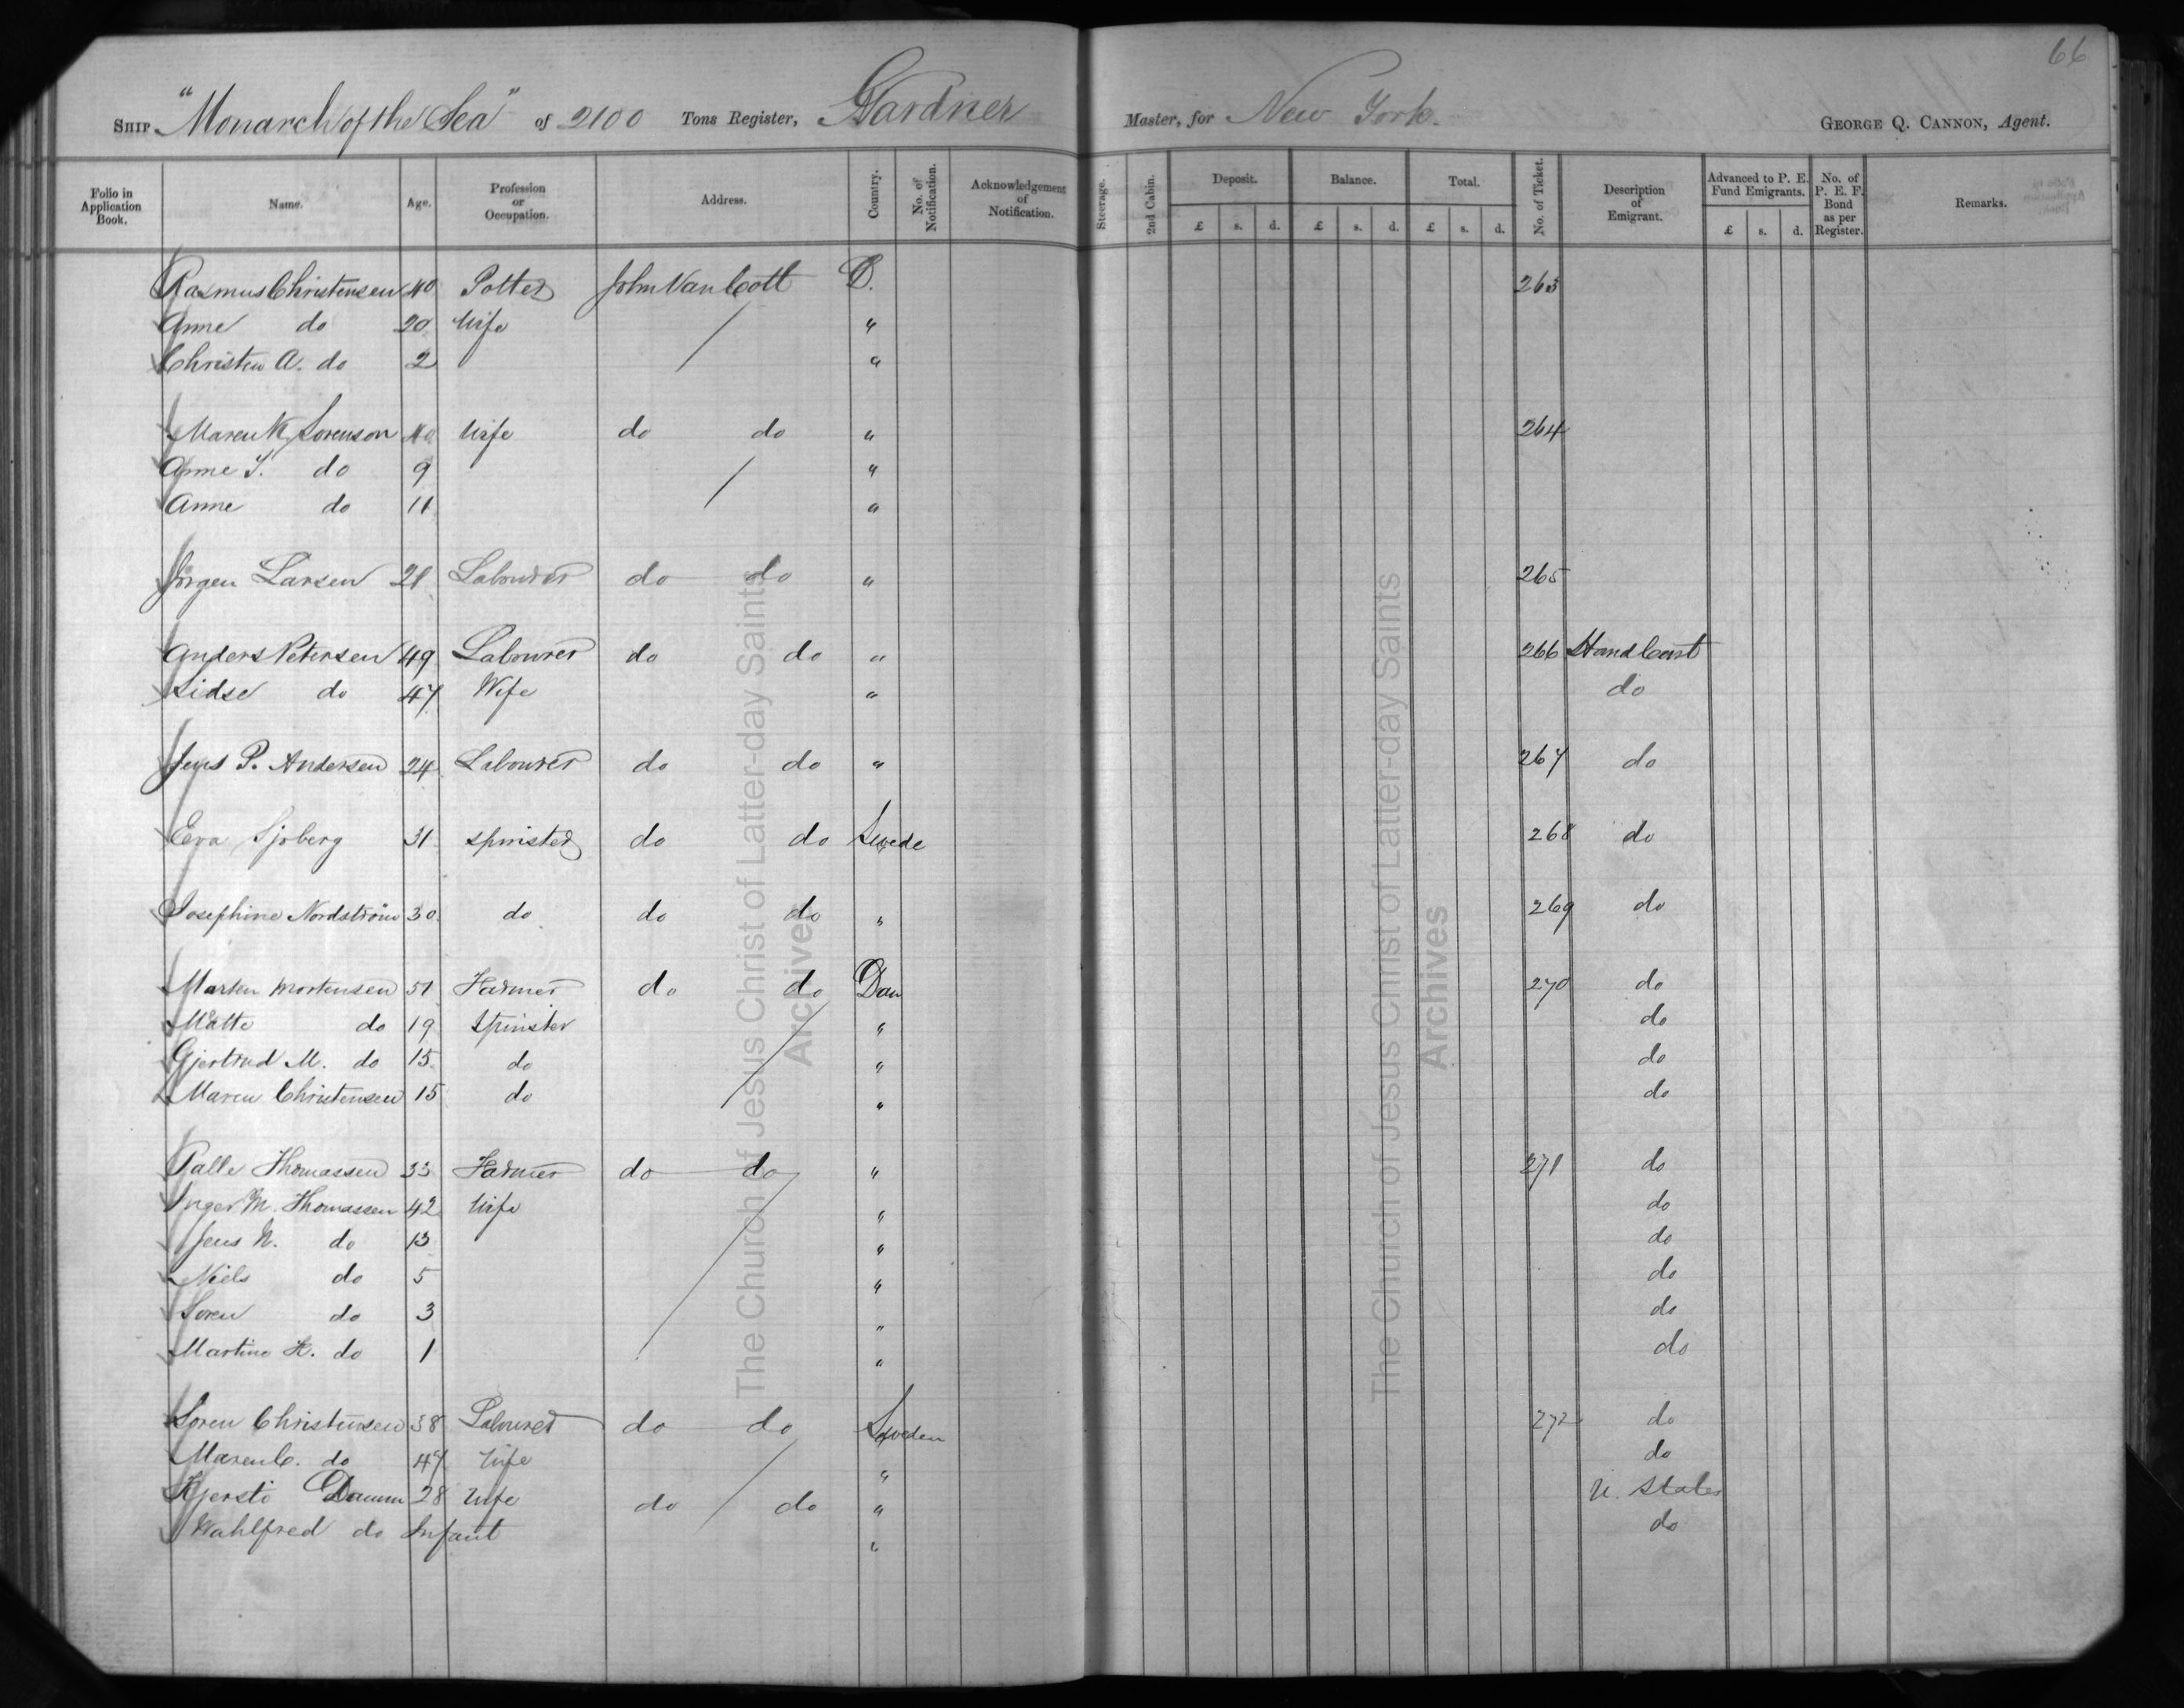 66
SHIP "Monarch of the Sea" of 2100 Tons Register, Gardner Master, for New York. GEORGE Q. CANNON, Agent.
Folio in Application Book. Name. Age. Profession or Occupation. Address. Country. No. of Notification. Acknowledgement of Notification. Steerage. 2nd Cabin. Deposit. £ s. d. Balance. £ s. d. Total. £ s. d. No. of Ticket. Description of Emigrant. Advanced to P. E. Fund Emigrants. £ s. d. No. of P. E. F. Bond as per Register. Remarks.
Rasmus Christensen 40 Potter John Van Cott D. 263
Anne do 20 Wife "
Christen A. do 2 "
Maren K. Sorenson 40 Wife do do " 264
Anne do 9 "
Anne do 11 "
Jörgen Larsen 21 Labourer do do " 265
Anders Petersen 49 Labourer do do " 266 Hand Cart
Sidse do 47 Wife " do
Jens P. Andersen 24 Labourer do do " 267 do
Eva Sjoberg 31 spinster do do Swede 268 do
Josephine Nordström 30 do do do " 269 do
Morten Mortensen 51 Farmer do do Dan 270 do
Mätte do 19 Spinster " do
Gjertrud M. do 15 do " do
Maren Christensen 15 do " do
Palle Thomassen 33 Farmer do do " 271 do
Inger M. Thomassen 42 Wife " do
Jens N. do 13 " do
Niels do 5 " do
Soren do 3 " do
Martine K. do 1 " do
Soren Christensen 38 Labourer do do Sweden 272 do
Maren C. do 47 Wife " do
Kjersti Damm 28 Wife do do " U. States
Wahlfred do Infant " do
The Church of Jesus Christ of Latter-day Saints
Archives
The Church of Jesus Christ of Latter-day Saints
Archives